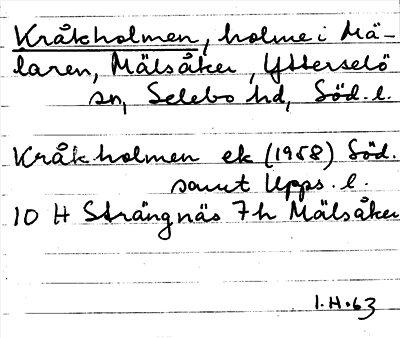 Kråkholmen, holme i Mä-
laren, Mälsåker, Ytterselö
sn, Selebo hd, Söd. l.
Kråkholmen ek (1958) Söd.
samt Upps. l.
10 H Strängnäs 7h Mälsåker
I.H.63